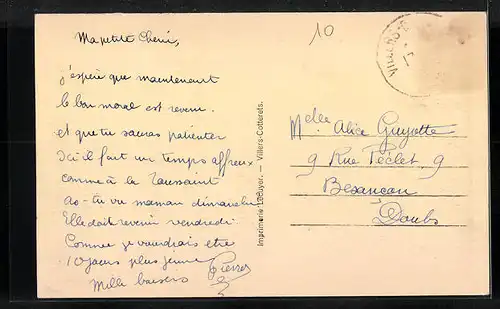 Ma petite Chérie,
j'espère que maintenant
le bon moral est revenu.
et que tu sauras patienter
Ici il fait un temps affreux
comme à la Toussaint
as-tu vu maman dimanche
Elle doit revenir vendredi
Comme je voudrais être
10 jours plus jeune
Mille baisers Pierre
Imprimerie Lécuyer. — Villers-Cotterets.
10
VILLERS
Melle Alice Guyotte
9 Rue Péclet, 9
Besançon
Doubs